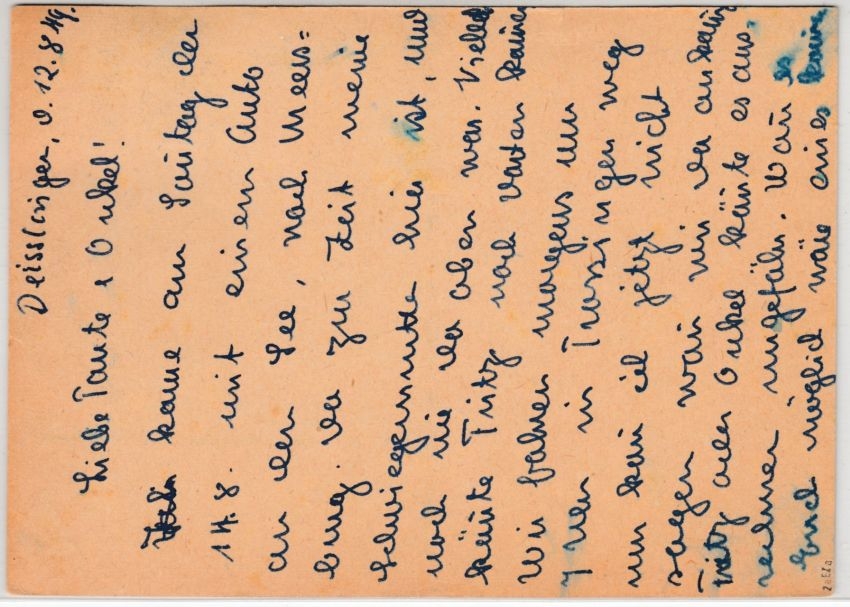 Deisslingen, d. 12.8.49.
Liebe Tante & Onkel!
Ich kame am Sontag den
14.8. mit einem Auto
an den See, nach Meers=
burg. Da zur Zeit meine
Schwiegermutter hier ist, und
noch nie da oben war. Vielleicht
könnte Fritz nach dorten kommen
Wir fahren morgens um
7 Uhr in Trossingen weg
nun kan ich jetzt nicht
sagen wan wir da ankommen
Fritz oder Onkel könnte es aus-
rechnen ungefähr. Wan es
Euch möglich wäre eines
2aEZa